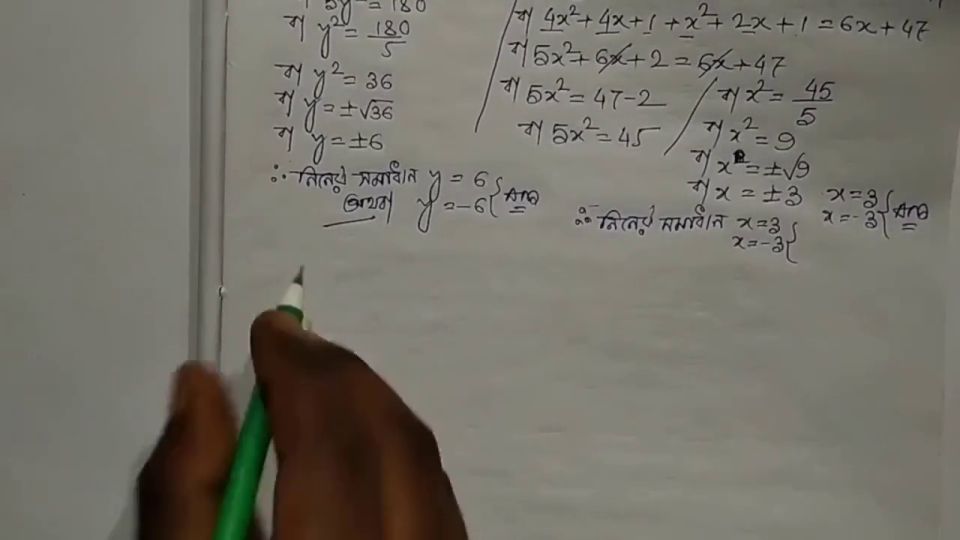 বা 5y² = 180
বা y² = 180/5
বা y² = 36
বা y = ±√36
বা y = ±6
∴ নির্ণেয় সমাধান y = 6
অথবা y = -6 } Ans
বা 4x² + 4x + 1 + x² + 2x + 1 = 6x + 47
বা 5x² + 6x + 2 = 6x + 47
বা 5x² = 47 - 2
বা 5x² = 45
বা x² = 45/5
বা x² = 9
বা x = ±√9
বা x = ±3
x = 3
x = -3 } Ans
∴ নির্ণেয় সমাধান x = 3
x = -3 }